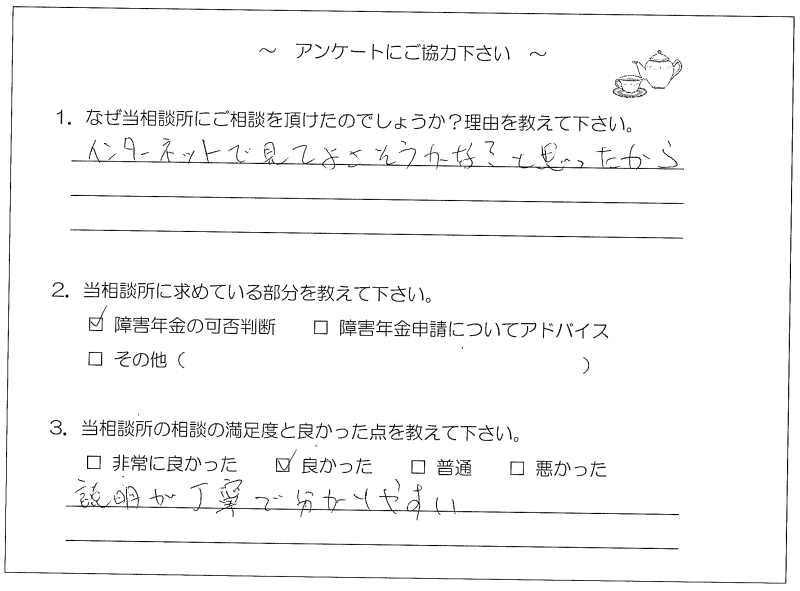 ～ アンケートにご協力下さい ～
1. なぜ当相談所にご相談を頂けたのでしょうか？理由を教えて下さい。
インターネットで見てよさそうかな？と思ったから
2. 当相談所に求めている部分を教えて下さい。
☑ 障害年金の可否判断 □ 障害年金申請についてアドバイス
□ その他（ ）
3. 当相談所の相談の満足度と良かった点を教えて下さい。
□ 非常に良かった ☑ 良かった □ 普通 □ 悪かった
説明が丁寧で分かりやすい